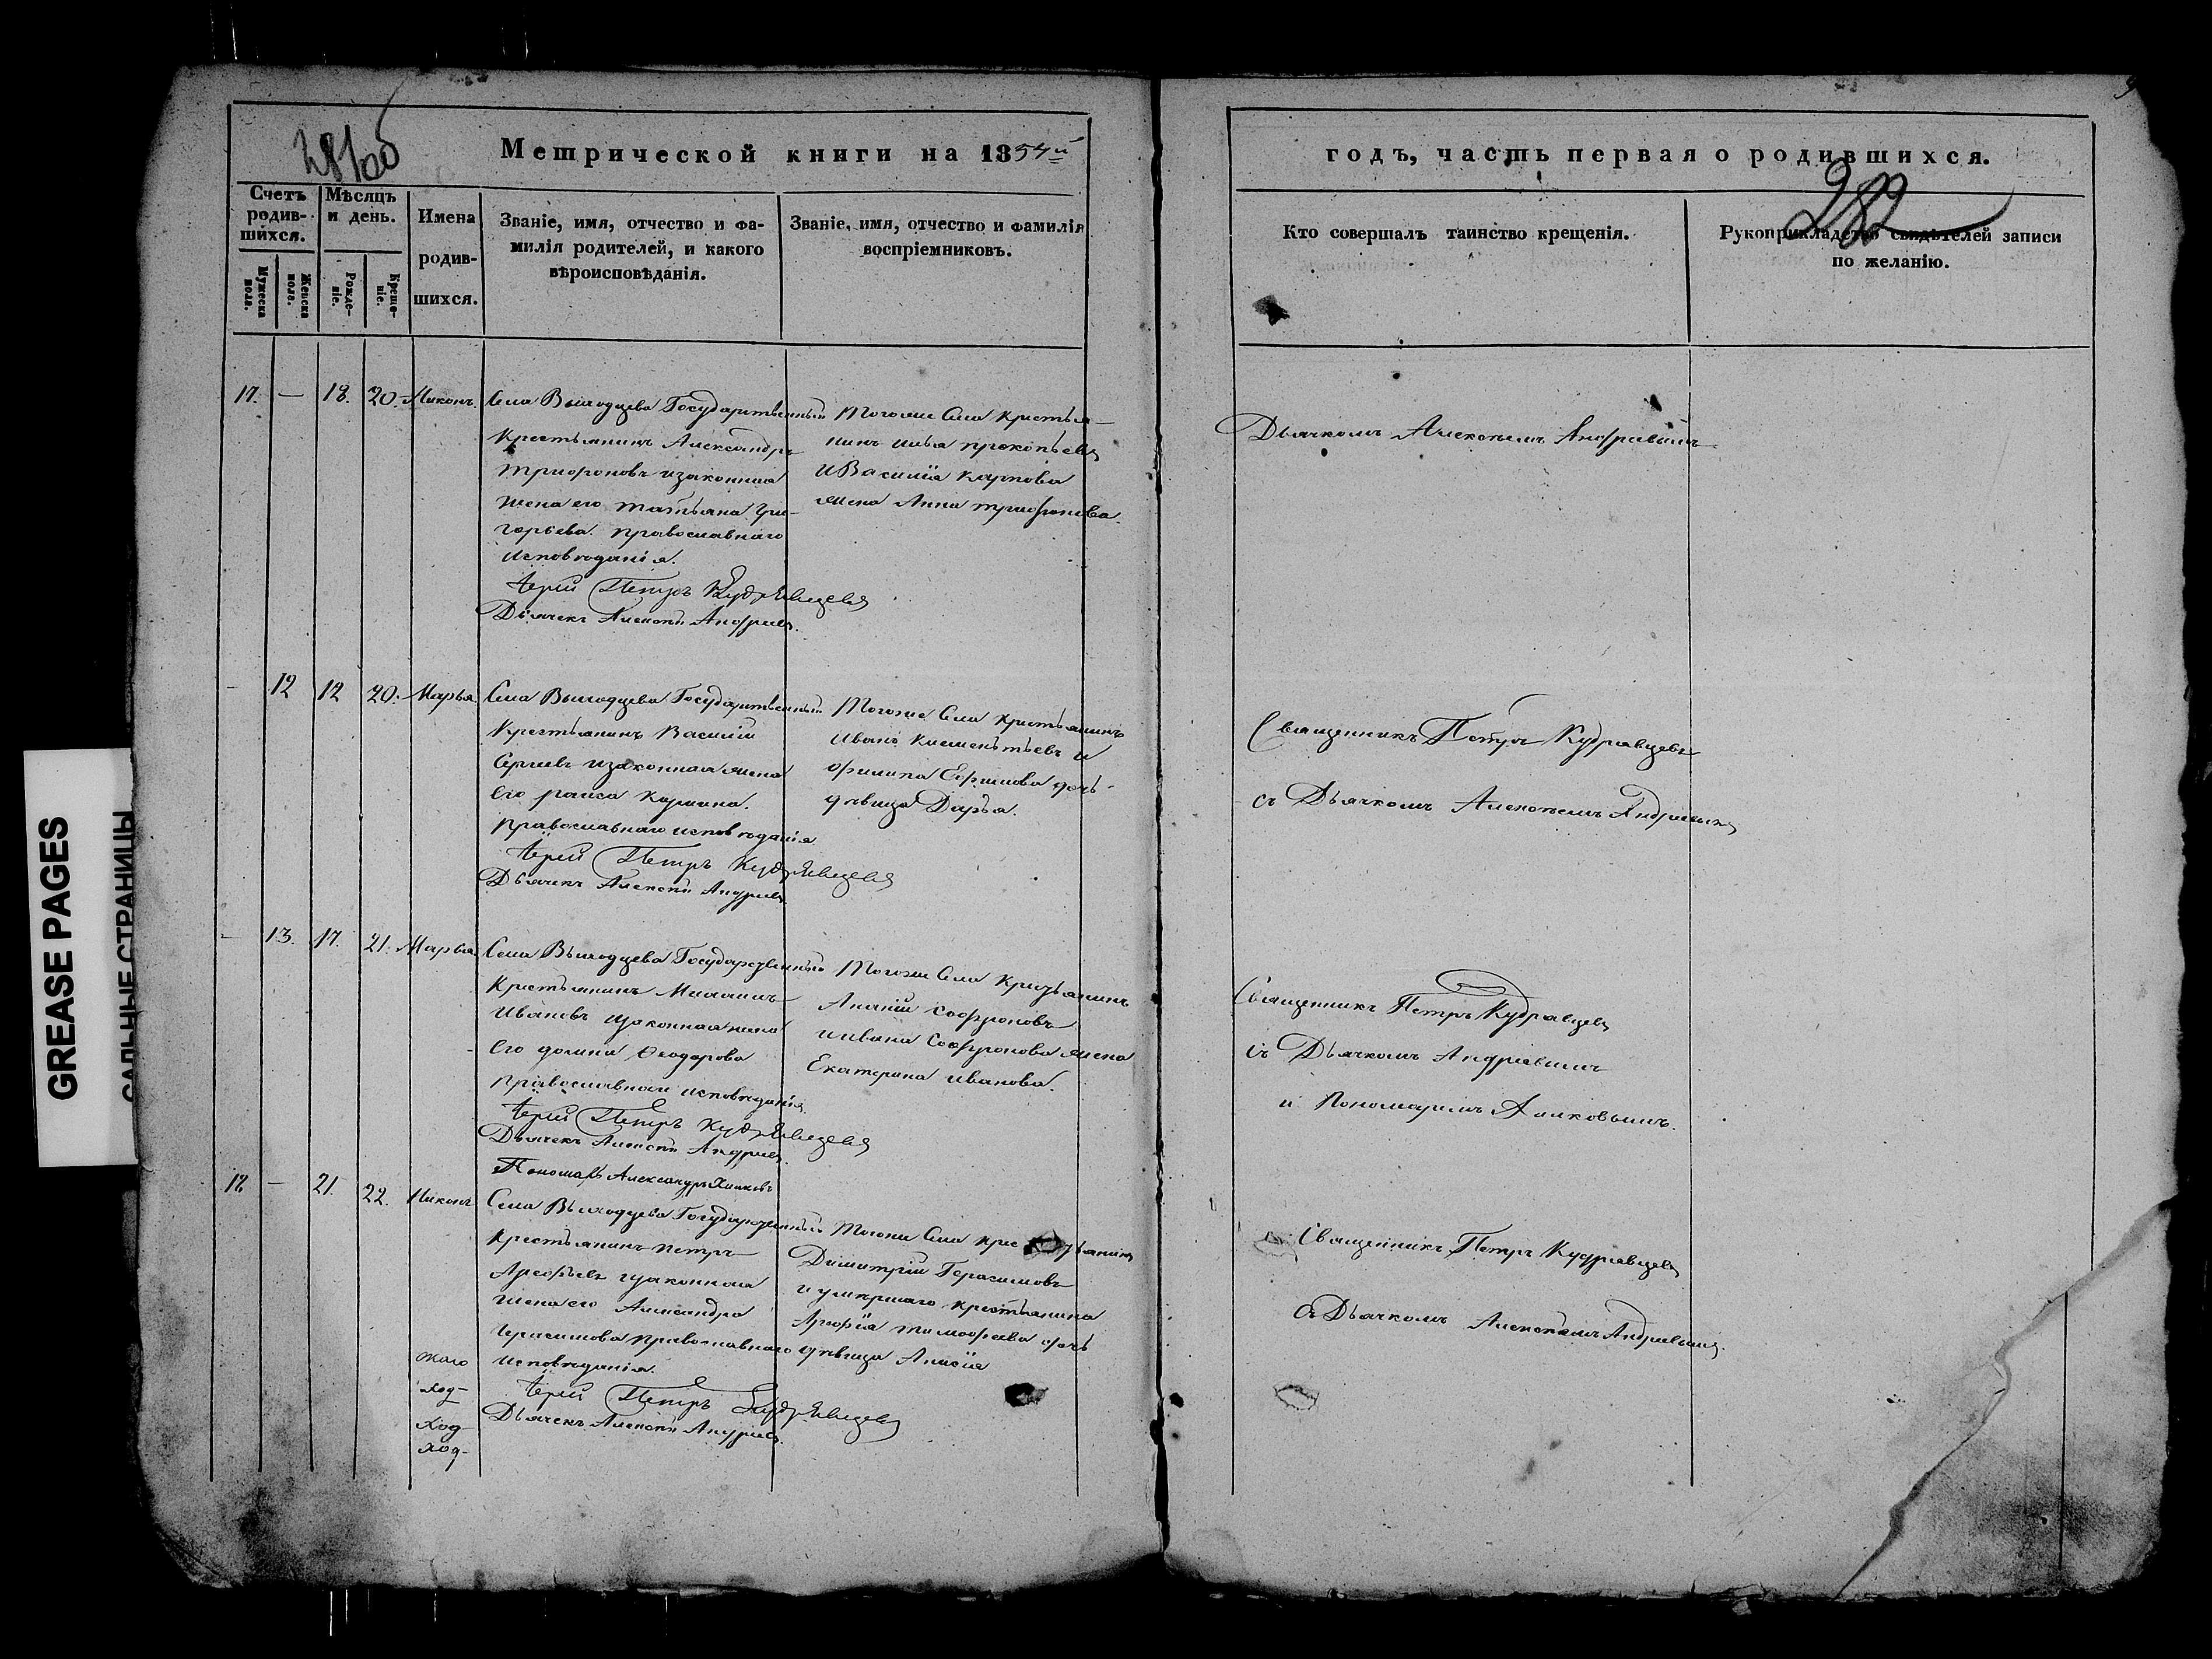 281об
Метрической книги на 1854й
годъ, часть первая о родившихся.
282
Счетъ родив-шихся.
Мужеска пола.
Женска пола.
Мѣсяцъ и день.
Рожде-ніе.
Креще-ніе.
Имена
родив-
шихся.
Званіе, имя, отчество и фа-
милія родителей, и какого
вѣроисповѣданія.
Званіе, имя, отчество и фамилія
воспріемниковъ.
Кто совершалъ таинство крещенія.
Рукоприкладство свидѣтелей записи
по желанію.
17. — 18. 20. Никонъ.
Села Выходцева Государственный
Крестьянинъ Александръ
Трифоновъ изаконная
жена его Татьяна Гри-
горьева. православнаго
исповѣданія.
Іерей Петръ Кудрявцевъ
Дьячекъ Алексѣй Андреевъ.
Тогоже Села Крестья-
нинъ Илья Прокопьевъ
и Василія Карпова
жена Анна Трифонова.
Дьячкомъ Алексѣемъ Андреевымъ
- 12 12 20. Марья
Села Выходцева Государственный
Крестьянинъ Василій
Сергѣевъ изаконная жена
Его раиса
православнаго исповѣданія
Іерей Петръ Кудрявцевъ
Дьячекъ Алексѣй Андреевъ
Тогоже Села Крестьянинъ
Иванъ Климентьевъ и
филипа Ефимова дочь
дѣвица Дарья.
Священникъ Петръ Кудравцевъ
съ Дьячкомъ Алексѣемъ Андреевымъ
- 13. 17. 21. Марья
Села Выходцева Государственный
Крестьянинъ
Ивановъ изаконная жена
Его домна Ѳеодорова
православнаго исповѣданія.
Іерей Петръ Кудрявцевъ
Дьячекъ Алексѣй Андреевъ.
Пономарь Александръ Хилковъ
Тогоже Села Крестьянинъ
Ананій Софроновъ
и ивана Софронова жена
Екатерина Иванова.
Священникъ Петръ Кудравцевъ
съ Дьячкомъ Андреевымъ
и Пономаремъ Хилковымъ.
18 — 21. 22. Никонъ
Села Выходцева Государственный
Крестьянинъ Петръ
Арефьевъ изаконная
жена его Александра
Герасимова православнаго
исповѣданія.
Іерей Петръ Кудрявцевъ
Дьячекъ Алексѣй Андреевъ.
Тогоже Села Крестьянинъ
Димитрій Герасимовъ
и умершаго крестьянина
Арефія тимофеева дочь
дѣвица Анисія
Священникъ Петръ Кудравцевъ
съ Дьячкомъ Алексѣемъ Андреевымъ.
ход-
ход-
ход-
GREASE PAGES
САЛЬНЫЕ СТРАНИЦЫ